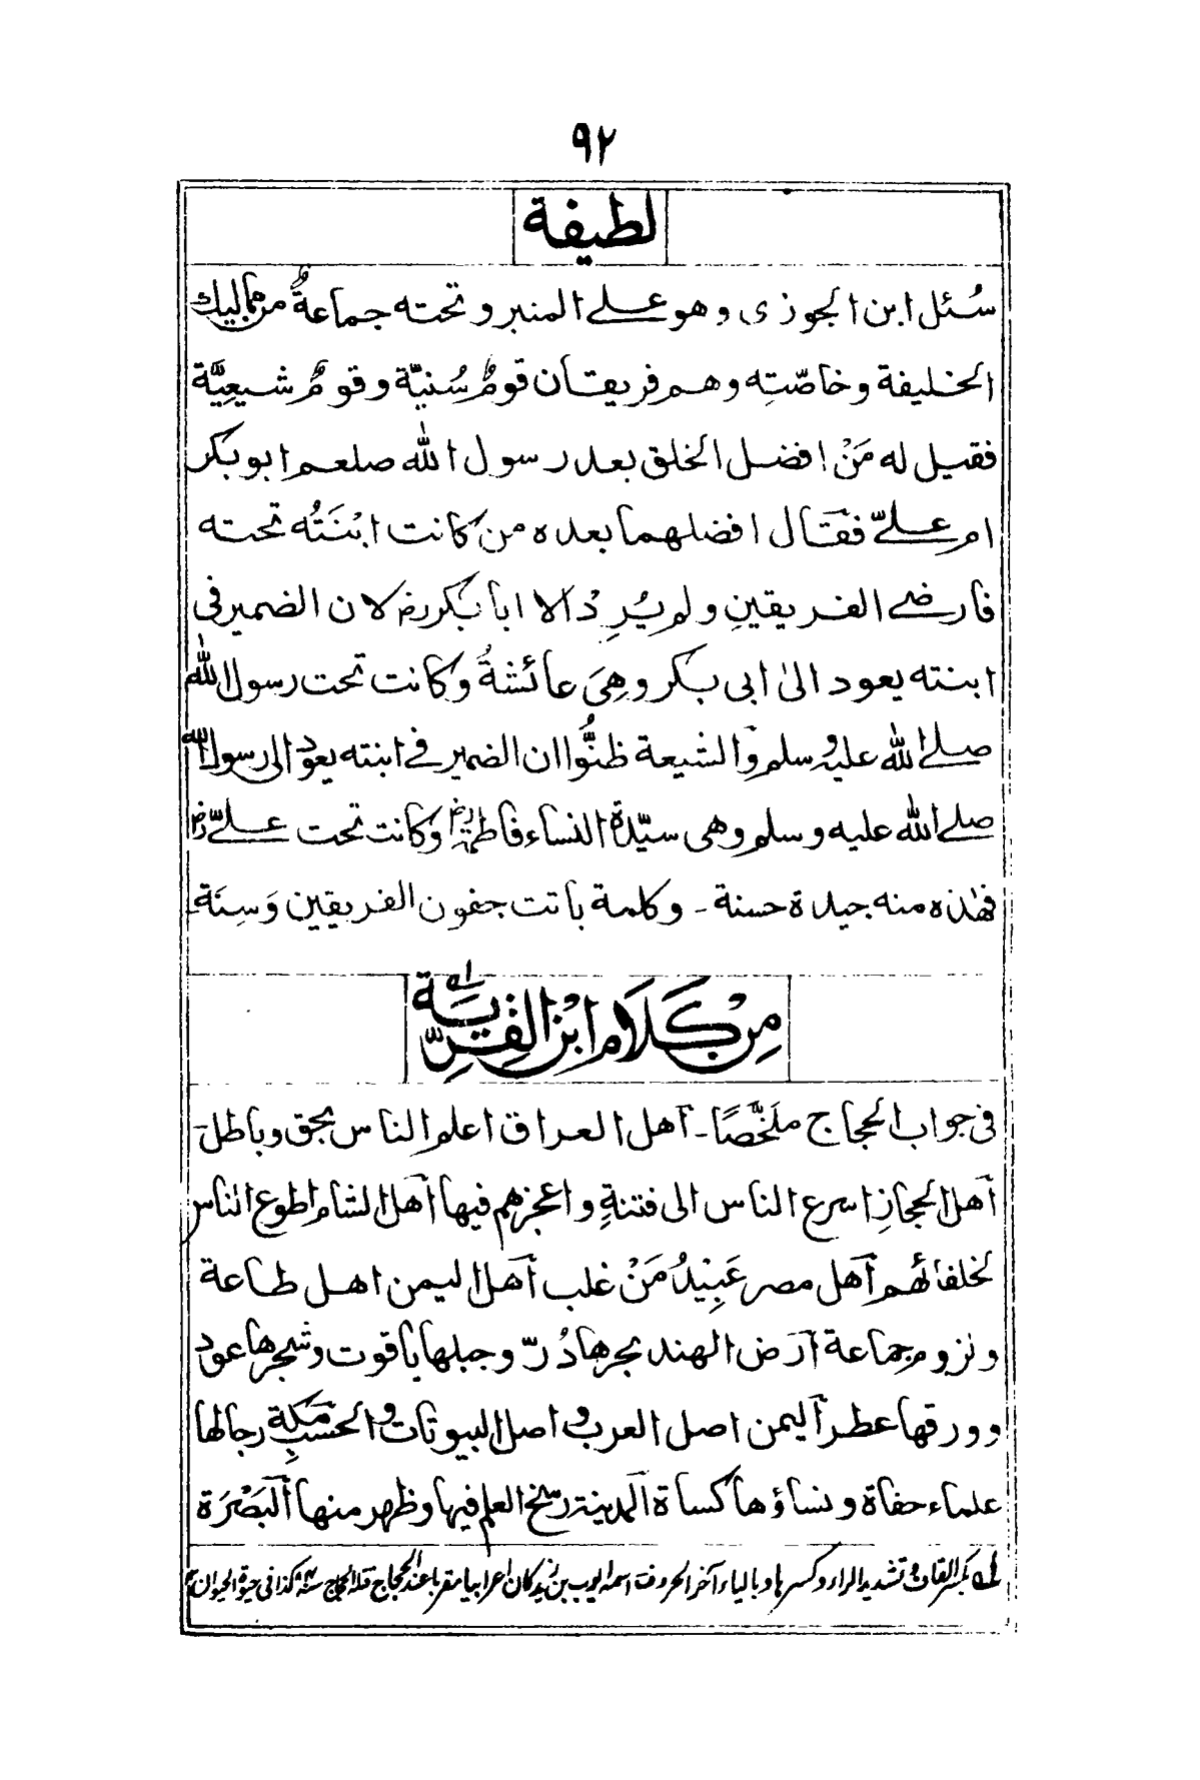 ٩٢
لطيفة
سُئل ابن الجوزى وهو على المنبر وتحته جماعةٌ من مماليك
الخليفة وخاصّتِه وهم فريقان قومٌ سُنيّة وقومٌ شيعيَّة
فقيل له مَنْ افضل الخلق بعد رسول الله صلعم ابو بكر
ام علىّ فقال افضلهما بعده من كانت ابْنَتُه تحته
فارضى الفريقينِ ولم يُرِدْ الا ابا بكر رض لان الضمير فى
ابنته يعود الىٰ ابى بكر وهِىَ عائشةُ وكانت تحت رسول الله
صلے الله عليه وسلم والشيعة ظنُّوا ان الضمير فے ابنته يعود الى رسول الله
صلے الله عليه وسلم وهى سيّدة النساء فاطمة رض وكانت تحت علىّ رض
فهٰذه منه جيدة حسنة ۔ وكلمة باتت جفون الفريقين وَسِنَة۔
مِنْ كَلَام ابْن القِرِّيَّة ؎١
فى جواب الحجاج ملَخَّصًا۔ آهل العراق اعلم الناس بحق وباطل۔
آهل الحجازِ اسرع الناس الى فتنةٍ واعجزهم فيها آهل الشام اطوع الناس
لخلفائهم آهل مصر عَبِيْدُ مَنْ غلب آهل اليمن اهل طاعة
ولزوم جماعة آرض الهند بحرها دُرّ وجبلها ياقوت وشجرها عود
وورقها عطر آليمن اصل العرب واصل البيوتات والحسَب مكة رجالها
علماء حفاة ونساؤها كساة آلمدينة رسخ العلم فيها وظهر منها آلبَصْرَة
؎١ بكسر القاف وتشديد الراء وكسرها وبالياء آخر الحروف اسمه ايوب بن زيد كان اعرابيا مقربا عند الحجاج قتله الحجاج كذا فى حيٰوة الحيوان